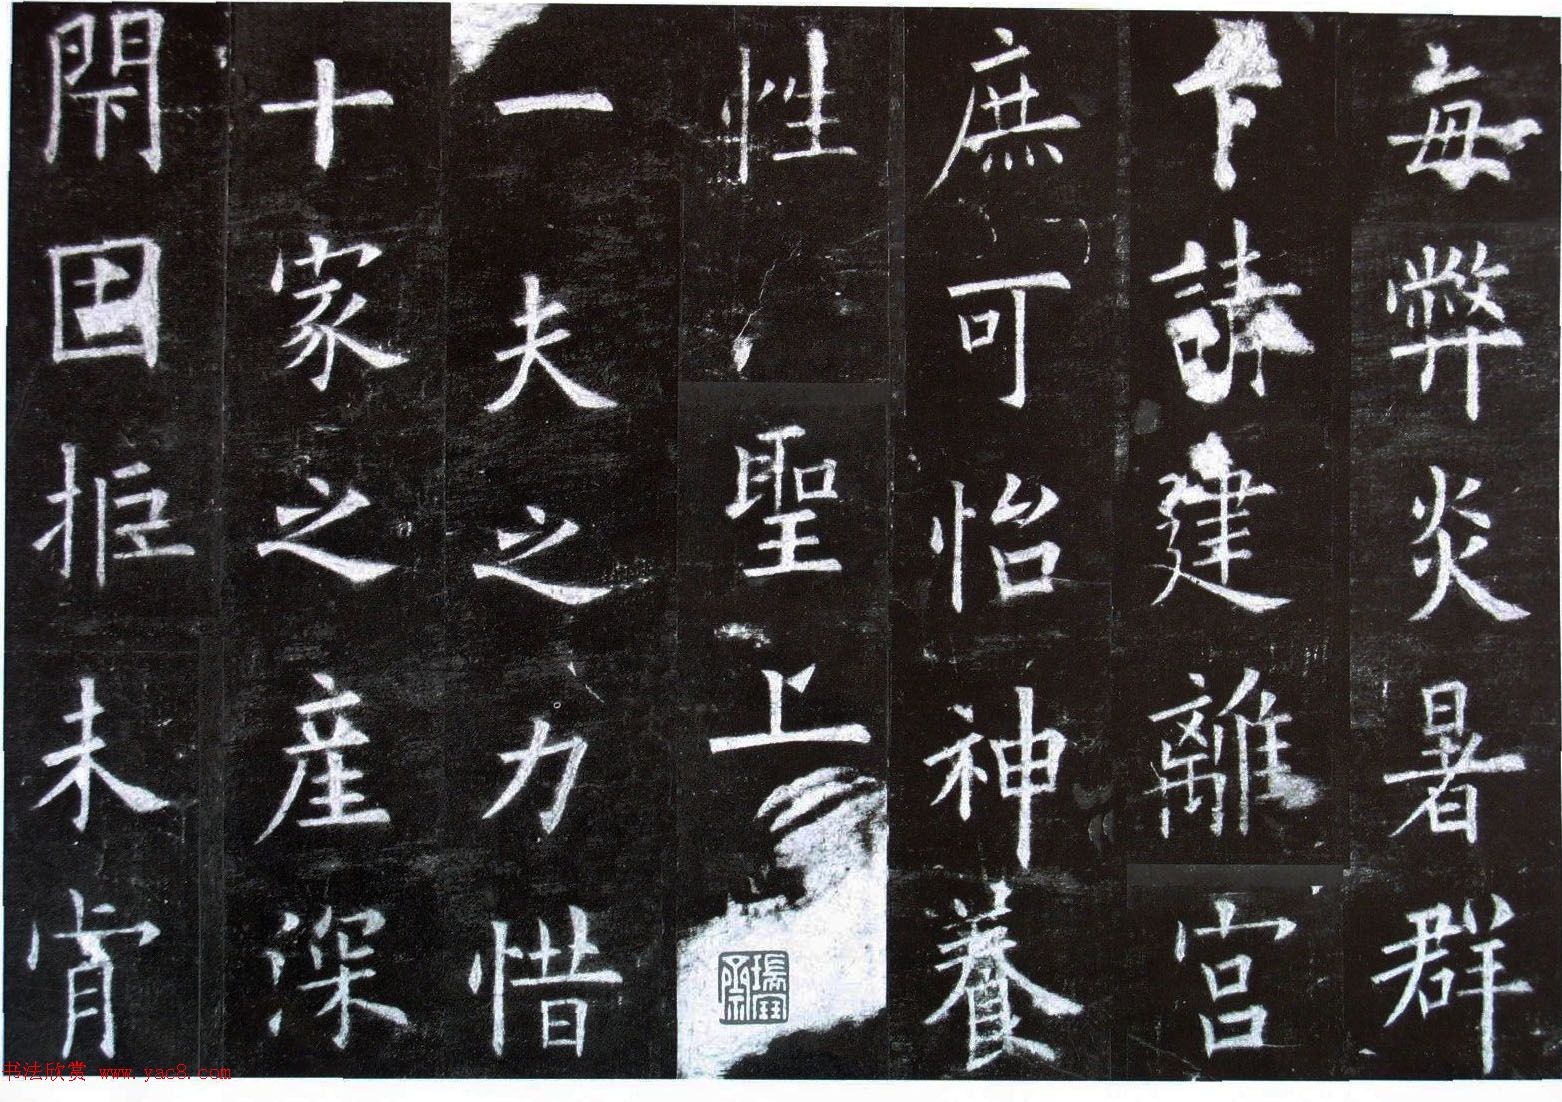 每弊炎暑群
下請建離宮
庶可怡神養
性聖上
一夫之力惜
十家之産深
閇固拒未肯
书法欣赏 www.yac8.com